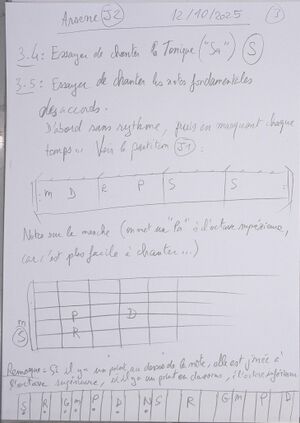 Arsene J2 12/10/2025 3
3.4: Essayer de chanter la Tonique ("Sa") S
3.5: Essayer de chanter les notes fondamentales
des accords.
D'abord sans rythme, puis en marquant chaque
temps... Voir la partition J1:
m D R P S S
Notes sur le manche (on met un "Pa" à l'octave supérieure,
car c'est plus facile à chanter...)
m
S
P D
R
Remarque = Si il y a un point au dessus de la note, elle est jouée à
l'octave supérieure, si il y a un point en dessous, à l'octave inférieure
S R G m P D N S R G m P D